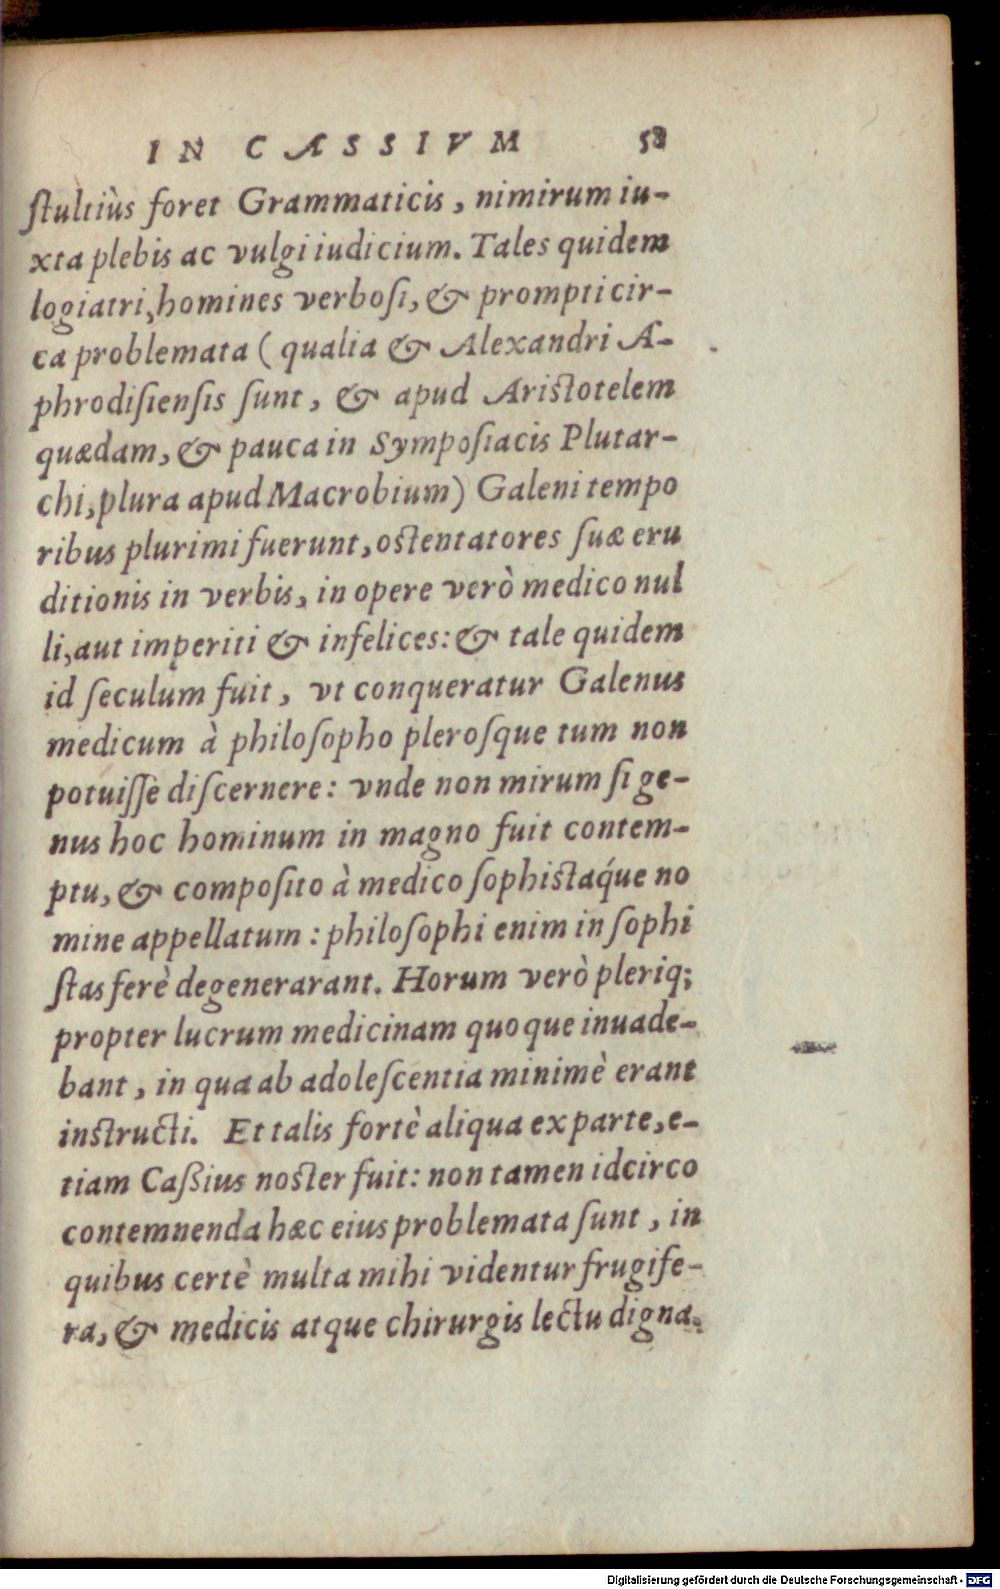 IN CASSIVM 58
stultiùs foret Grammaticis, nimirum iu-
xta plebis ac vulgi iudicium. Tales quidem
logiatri, homines verbosi, & prompti cir-
ca problemata (qualia & Alexandri A-
phrodisiensis sunt, & apud Aristotelem
quædam, & pauca in Symposiacis Plutar-
chi, plura apud Macrobium) Galeni tempo
ribus plurimi fuerunt, ostentatores suæ eru
ditionis in verbis, in opere verò medico nul
li, aut imperiti & infelices: & tale quidem
id seculum fuit, vt conqueratur Galenus
medicum à philosopho plerosque tum non
potuisse discernere: vnde non mirum si ge-
nus hoc hominum in magno fuit contem-
ptu, & composito à medico sophistaq́ue no
mine appellatum: philosophi enim in sophi
stas ferè degenerarant. Horum verò pleriq;
propter lucrum medicinam quoque inuade-
bant, in qua ab adolescentia minimè erant
instructi. Et talis fortè aliqua ex parte, e-
tiam Caßius noster fuit: non tamen idcirco
contemnenda hæc eius problemata sunt, in
quibus certè multa mihi videntur frugife-
ra, & medicis atque chirurgis lectu digna.
Digitalisierung gefördert durch die Deutsche Forschungsgemeinschaft - DFG